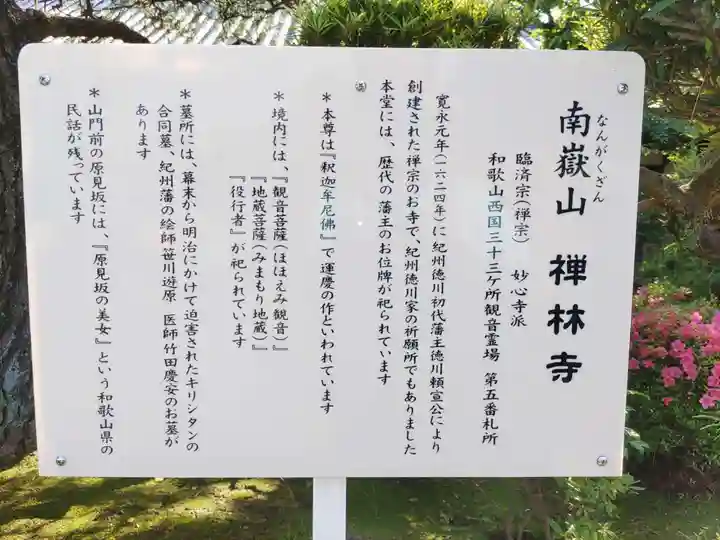 なんがくざん
南嶽山 禅林寺
臨済宗(禅宗) 妙心寺派
和歌山西国三十三ケ所観音霊場 第五番札所
寛永元年(一六二四年)に紀州徳川初代藩主徳川頼宣公により
創建された禅宗のお寺で、紀州徳川家の祈願所でもありました
本堂には、歴代の藩主のお位牌が祀られています
*本尊は『釈迦牟尼佛』で運慶の作といわれています
*境内には、『観音菩薩(ほほえみ観音)』
『地蔵菩薩(みまもり地蔵)』
『役行者』が祀られています
*墓所には、幕末から明治にかけて迫害されたキリシタンの
合同墓、紀州藩の絵師笹川遊原 医師竹田慶安のお墓が
あります
*山門前の原見坂には、『原見坂の美女』という和歌山県の
民話が残っています